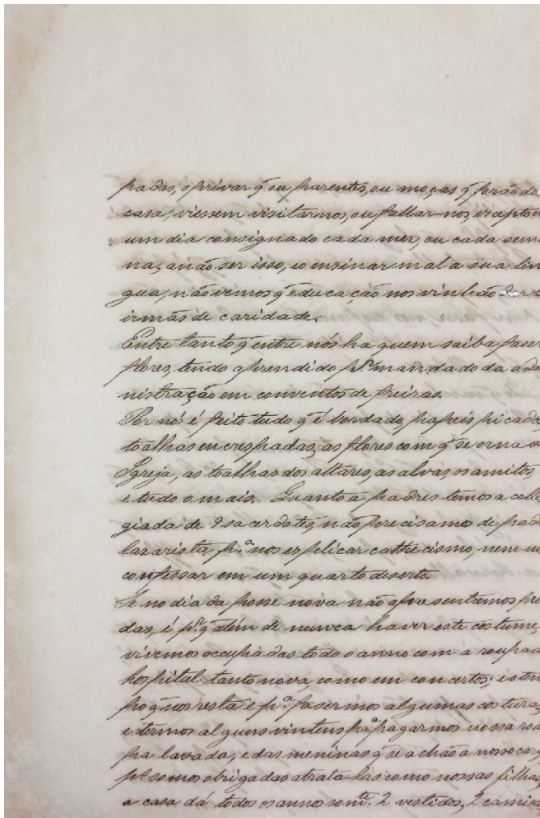 padas, o privar q̃ ou parentes, ou moças q̃ forão da
casa, viessem visitarmos, ou fallar-nos, excepto
um dia consignado cada mez, ou cada sem
na; a não ser isso, e o ensinar mal a sua lin
gua, não vemos q̃ educação nos vinhão dar
irmãs de caridade.
Entre tanto q̃ entre nós ha quem saiba faser
flores, tendo aprendido pr. mandado da adm
nistração em conventos de freiras.
Por nós é feito tudo q̃ é bordado, papeis picados,
toalhas encrespadas, as flores com q̃ se orna a
Igreja, as toalhas dos altares, as alvas, os amitos,
e tudo o mais. Quanto a padres temos a colle
giada de 9 sacerdotes, não precisamos de pad
lazarista pa. nos explicar cathecismo, nem n
confessar em um quarto deserto.
Se no dia da posse nova não apresentamos pre
das, é pr. q̃ além de nunca haver este costume,
vivemos occupadas todo o anno com a roupa d
hospital tanto nova, como em concertos, e o tem
po q̃ nos resta é pa. fasermos algumas costuras,
e termos alguns vintens pa. pagarmos nossa rou
pa lavada, e das meninas q̃ se achão a nosso carg
ps. somos obrigadas a trata-las como nossas filhas,
a casa dá todos os annos somte. 2 vestidos, 2 camisa